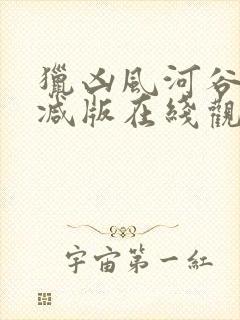 獵凶風河谷
减版在綫觀
宇宙第一紅